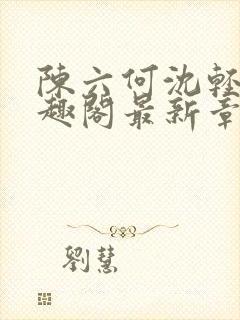 陳六何沈輕
趣閣最新章
劉慧